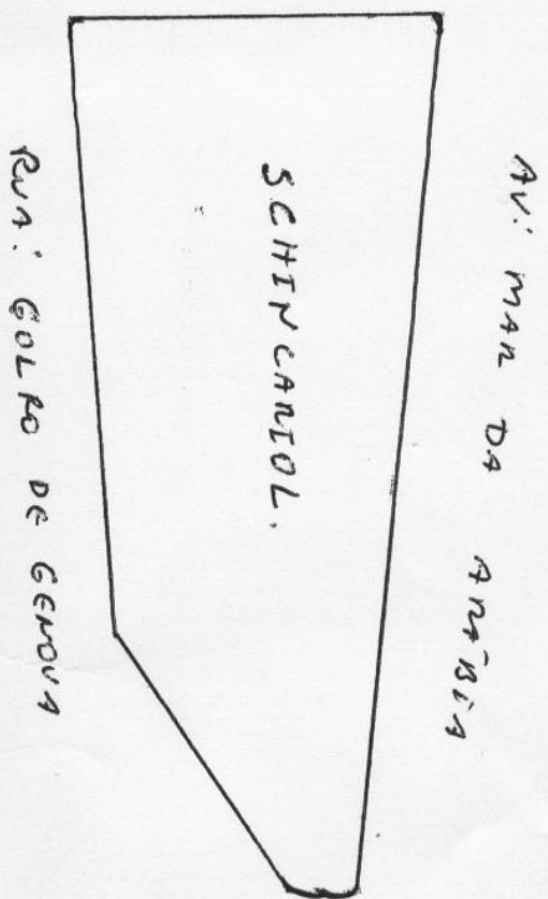 AV: MAR DA ARÁBIA
SCHINCARIOL.
RUA: GOLFO DE GENOVA